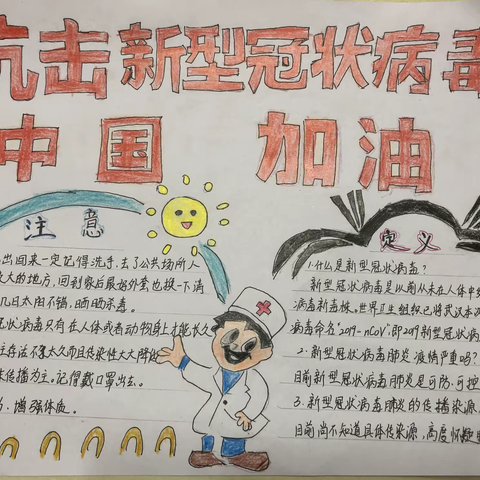 抗击新型冠状病毒
中国 加油
注意
出回来一定记得洗手,去了公共场所人
大的地方,回到家后最好外套也换一下清
几日太阳不错,晒晒杀毒。
状病毒只有在人体或者动物身上才能长久
存活不了太久而且传染性大大降低
传播为主。记得戴口罩出去。
增强体质。
定义
1.什么是新型冠状病毒?
新型冠状病毒是以前从未在人体中
病毒新毒株。世界卫生组织已将武汉
病毒命名"2019-nCoV",即2019新型冠状病
2.新型冠状病毒肺炎疫情严重吗?
目前新型冠状病毒肺炎是可防、可控
3.新型冠状病毒肺炎的传播染源
目前尚不知道具体传染源,高度怀疑